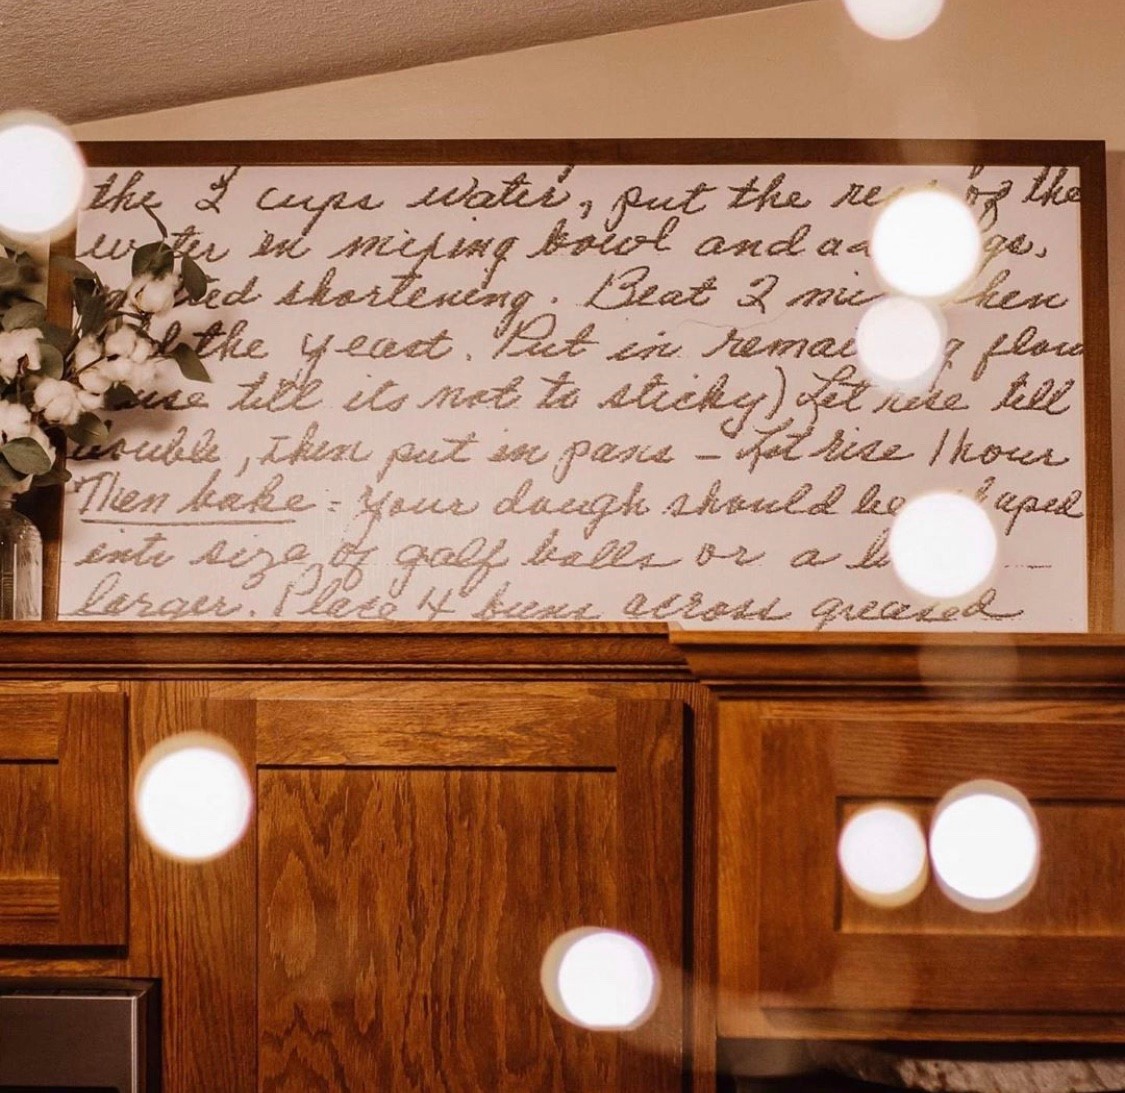 the 2 cups water, put the of the
water in mixing bowl and
shortening. Beat 2
the yeast. Put in flour
till its not to sticky) Let rise till
double, then put in pans - Let rise 1 hour
Then bake - Your dough should be
into size of golf balls or a
larger. Place 4 buns across greased